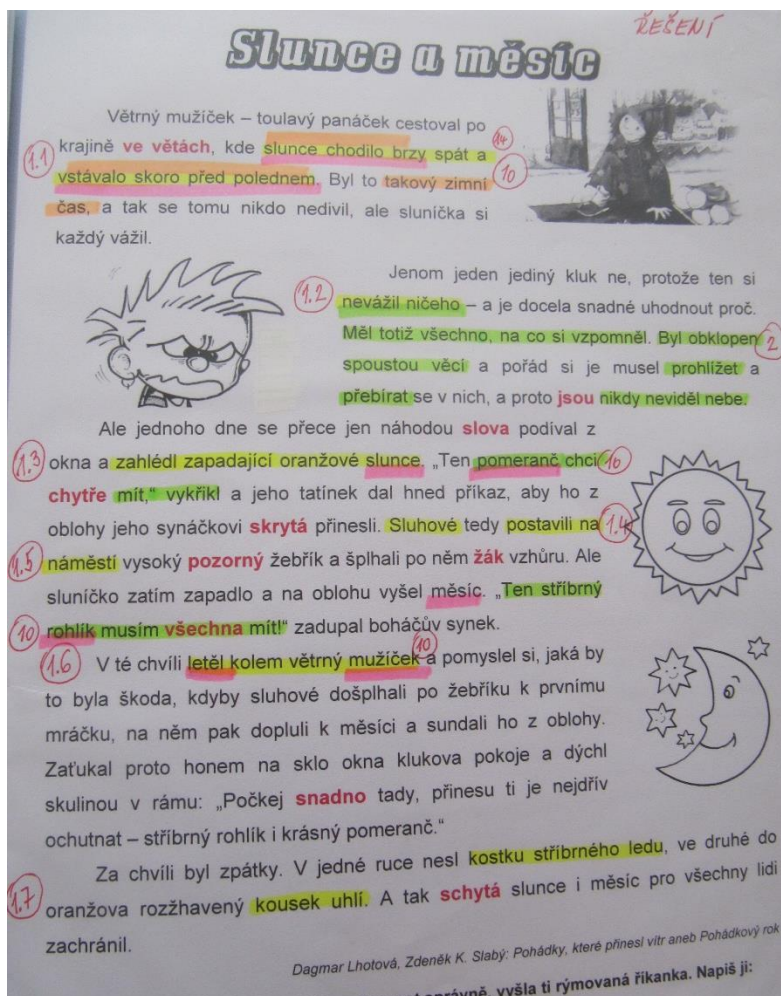 ŘEŠENÍ
Slunce a měsíc
Větrný mužíček – toulavý panáček cestoval po
14
1.1 krajině ve větách, kde slunce chodilo brzy spát a
10
vstávalo skoro před polednem. Byl to takový zimní
čas, a tak se tomu nikdo nedivil, ale sluníčka si
každý vážil.
Jenom jeden jediný kluk ne, protože ten si
1.2 nevážil ničeho – a je docela snadné uhodnout proč.
Měl totiž všechno, na co si vzpomněl. Byl obklopen 2
spoustou věcí a pořád si je musel prohlížet a
přebírat se v nich, a proto jsou nikdy neviděl nebe.
Ale jednoho dne se přece jen náhodou slova podíval z
1.3 okna a zahlédl zapadající oranžové slunce. „Ten pomeranč chci 16
chytře mít,“ vykřikl a jeho tatínek dal hned příkaz, aby ho z
oblohy jeho synáčkovi skrytá přinesli. Sluhové tedy postavili na 1.4
1.5 náměstí vysoký pozorný žebřík a šplhali po něm žák vzhůru. Ale
sluníčko zatím zapadlo a na oblohu vyšel měsíc. „Ten stříbrný
10 rohlík musím všechna mít!“ zadupal boháčův synek.
10
1.6 V té chvíli letěl kolem větrný mužíček a pomyslel si, jaká by
to byla škoda, kdyby sluhové došplhali po žebříku k prvnímu
mráčku, na něm pak dopluli k měsíci a sundali ho z oblohy.
Zaťukal proto honem na sklo okna klukova pokoje a dýchl
skulinou v rámu: „Počkej snadno tady, přinesu ti je nejdřív
ochutnat – stříbrný rohlík i krásný pomeranč.“
Za chvíli byl zpátky. V jedné ruce nesl kostku stříbrného ledu, ve druhé do
1.7 oranžova rozžhavený kousek uhlí. A tak schytá slunce i měsíc pro všechny lidi
zachránil.
Dagmar Lhotová, Zdeněk K. Slabý: Pohádky, které přinesl vítr aneb Pohádkový rok
správně, vyšla ti rýmovaná říkanka. Napiš ji: